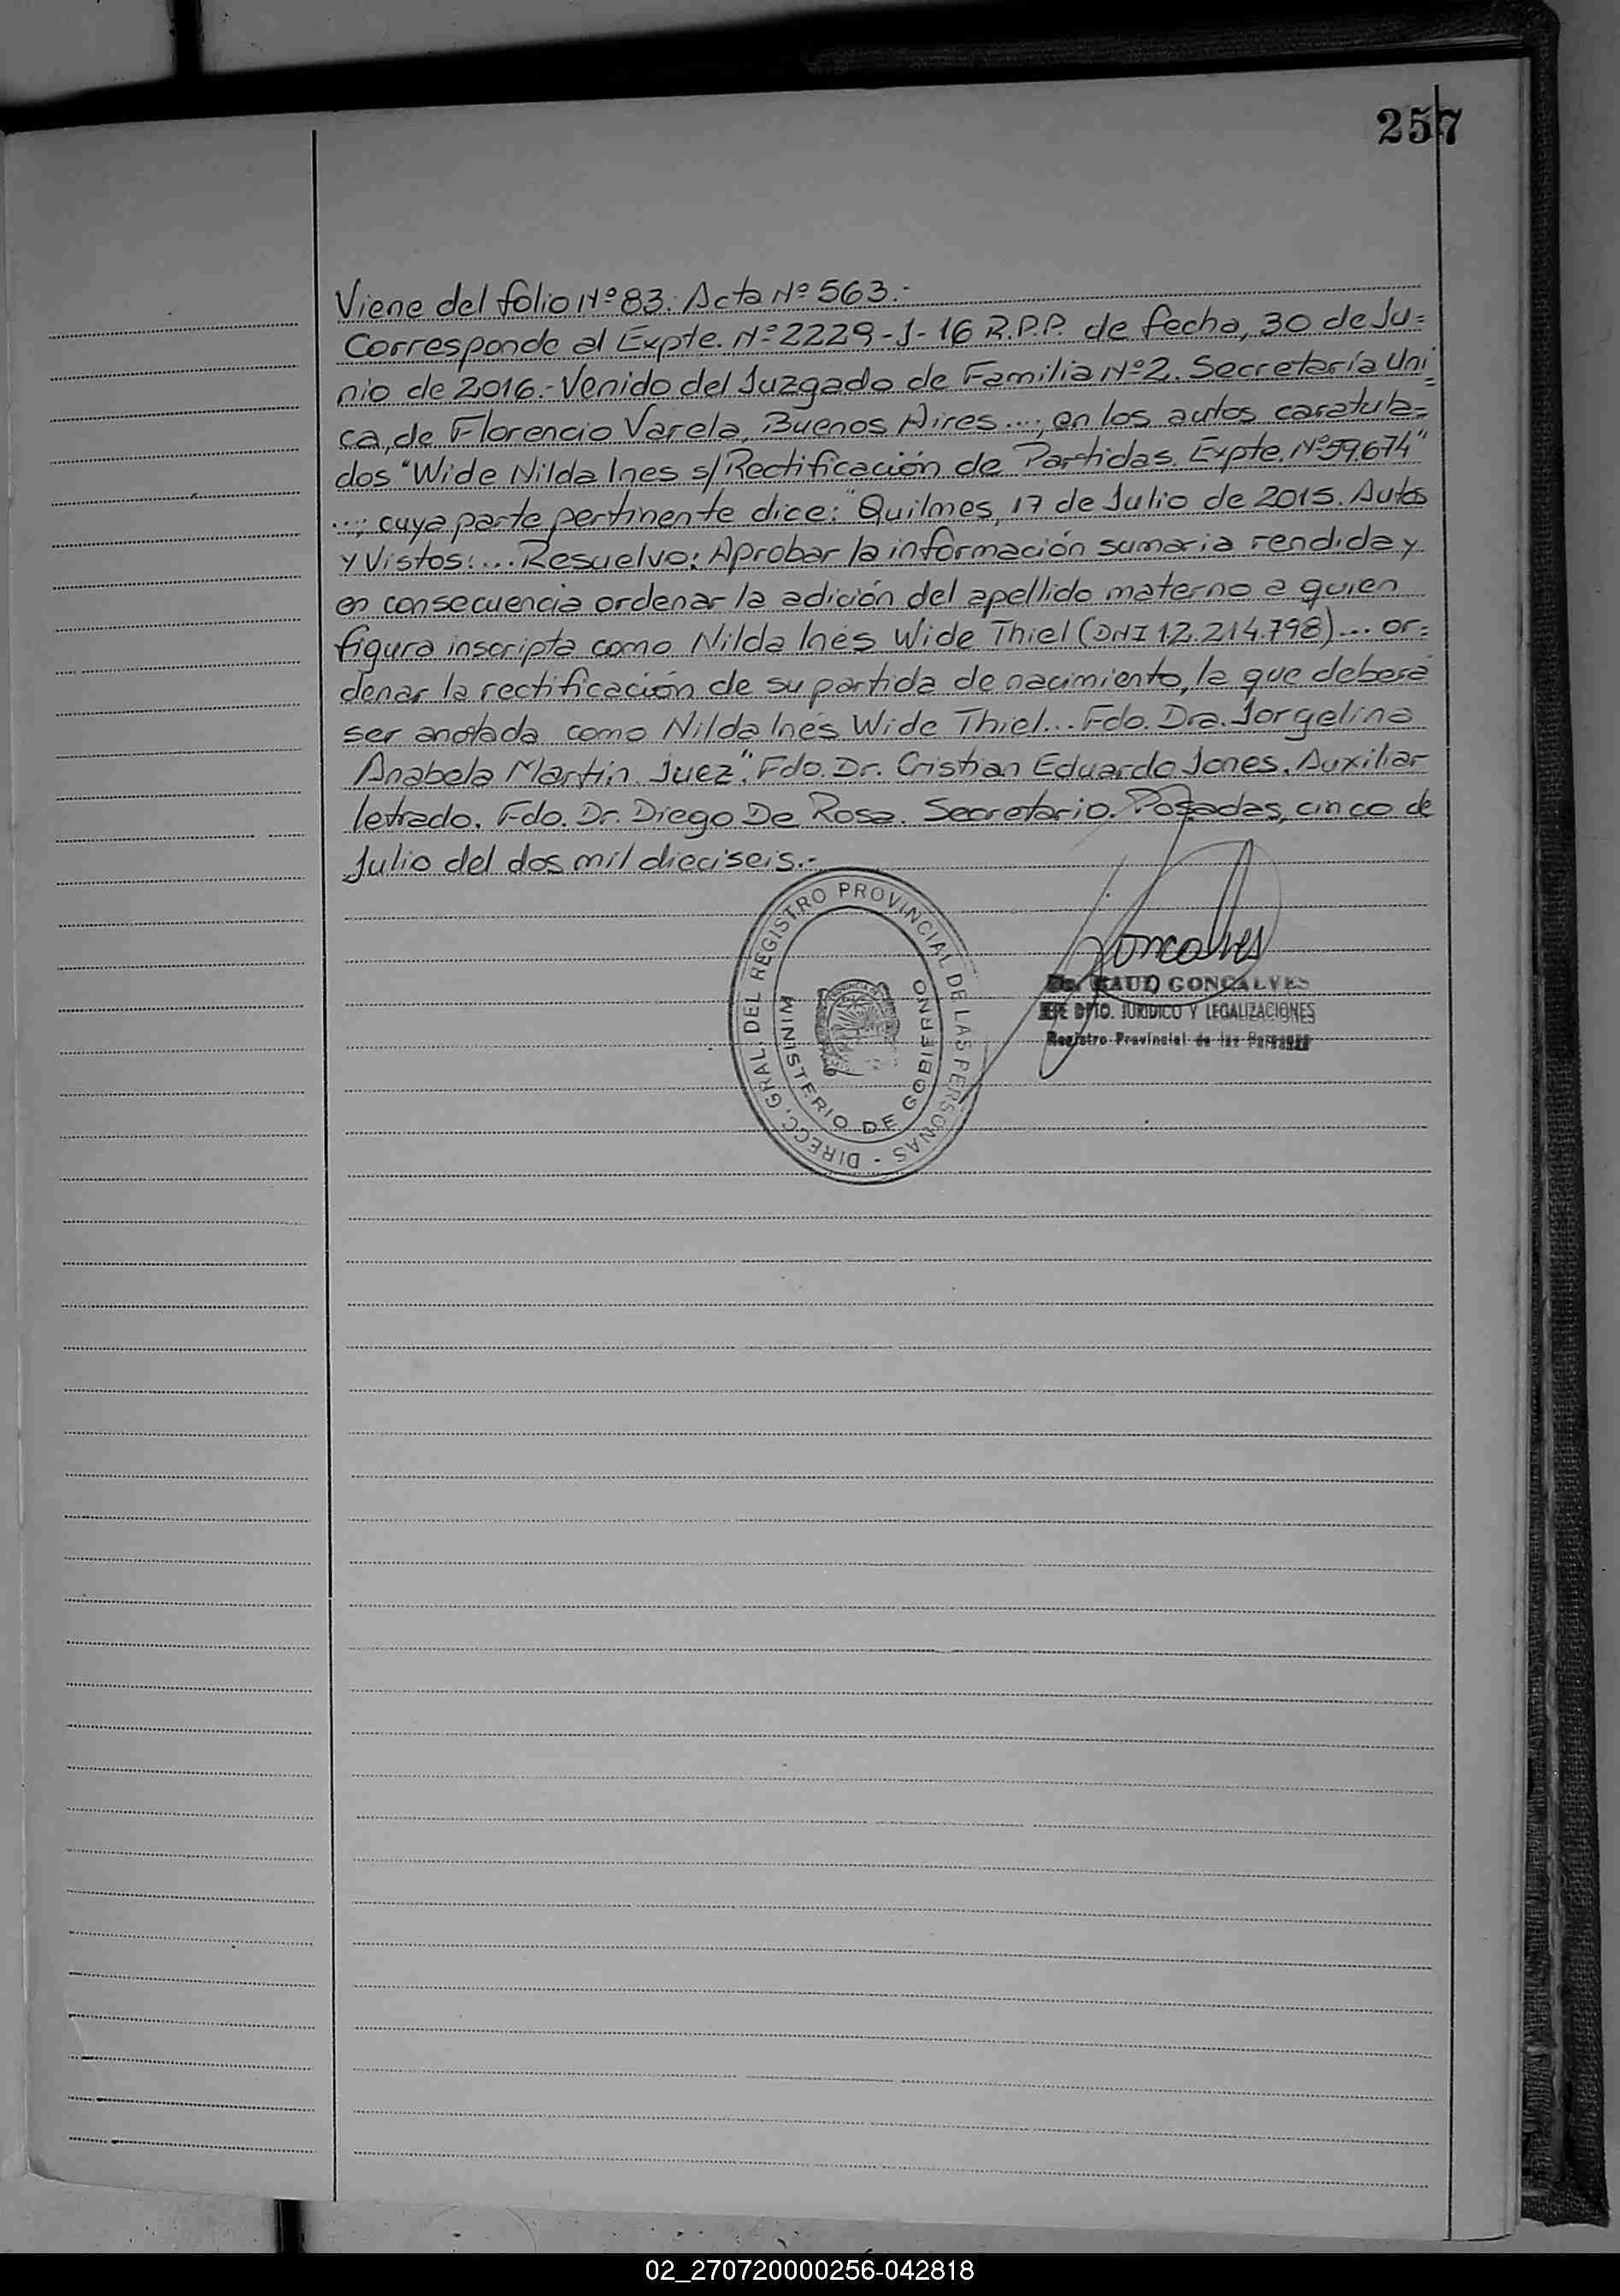 257
Viene del folio Nº 83. Acta Nº 563.-
Corresponde al Expte. Nº 2229-J-16 R.P.P. de fecha, 30 de Ju=
nio de 2016.- Venido del Juzgado de Familia Nº2. Secretaría Uni=
ca, de Florencio Varela, Buenos Aires ...; en los autos caratula=
dos "Wide Nilda Ines s/ Rectificación de Partidas. Expte. Nº 59.674"
...; cuya parte pertinente dice: "Quilmes, 17 de Julio de 2015. Autos
y Vistos: ... Resuelvo: Aprobar la información sumaria rendida y
en consecuencia ordenar la adición del apellido materno a quien
figura inscripta como Nilda Inés Wide Thiel (DNI 12.214.798) ... or=
denar la rectificación de su partida de nacimiento, la que deberá
ser anotada como Nilda Inés Wide Thiel... Fdo. Dra. Jorgelina
Anabela Martín. Juez". Fdo. Dr. Cristian Eduardo Jones. Auxiliar
letrado. Fdo. Dr. Diego De Rosa. Secretario. Posadas, cinco de
Julio del dos mil dieciseis.-
DIRECC. GRAL. DEL REGISTRO PROVINCIAL DE LAS PERSONAS -
MINISTERIO DE GOBIERNO
Goncalves
Dr. RAUL GONCALVES
JEFE DPTO. JURIDICO Y LEGALIZACIONES
Registro Provincial de las Personas
02_270720000256-042818